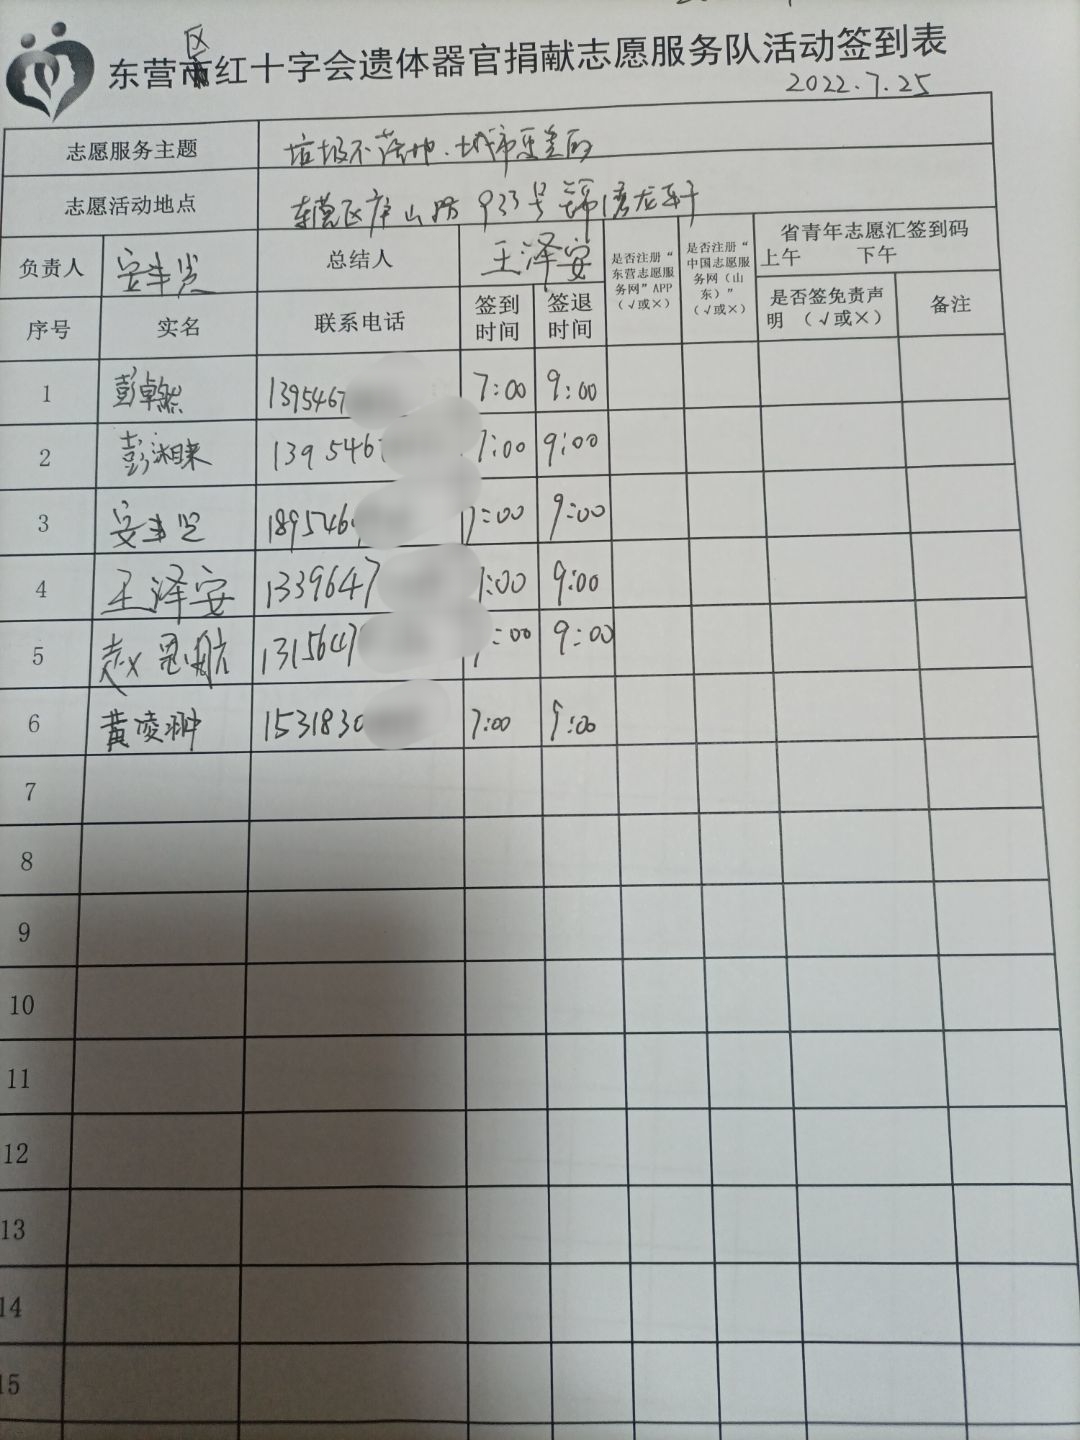 东营区红十字会遗体器官捐献志愿服务队活动签到表
2022.7.25
志愿服务主题 垃圾不落地.城市更美丽
志愿活动地点 东营区庐山路933号
负责人 总结人 王泽安 是否注册“东营志愿服务网”APP（√或×） 是否注册“中国志愿服务网（山东）”（√或×） 省青年志愿汇签到码
上午 下午
序号 实名 联系电话 签到时间 签退时间 是否签免责声明（√或×） 备注
1 彭卓然 1395467 7:00 9:00
2 彭湘睐 139546 7:00 9:00
3 189546 7:00 9:00
4 王泽安 1339647 7:00 9:00
5 赵思航 1315647 7:00 9:00
6 黄凌翀 1531830 7:00 9:00
7
8
9
10
11
12
13
14
15